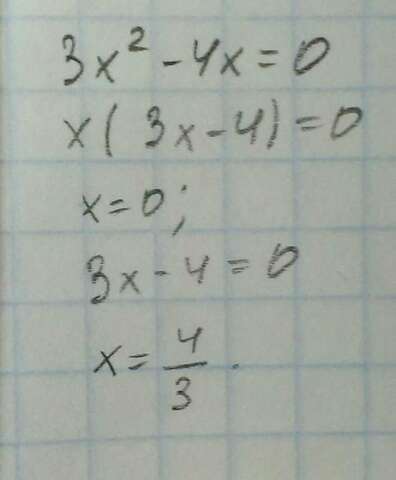 3x² - 4x = 0
x(3x - 4) = 0
x = 0;
3x - 4 = 0
x = 4/3.